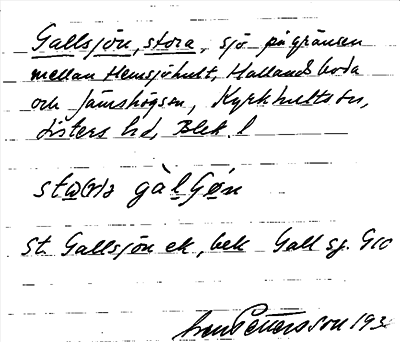 Gallsjön, stora, sjö på gränsen
mellan Hemsjöhult, Hallandsboda
och Jämshögsm, Kyrkhults sn,
Listers hd, Blek. l
St. Gallsjön ek, bek Gall sj. GK
Pettersson 193